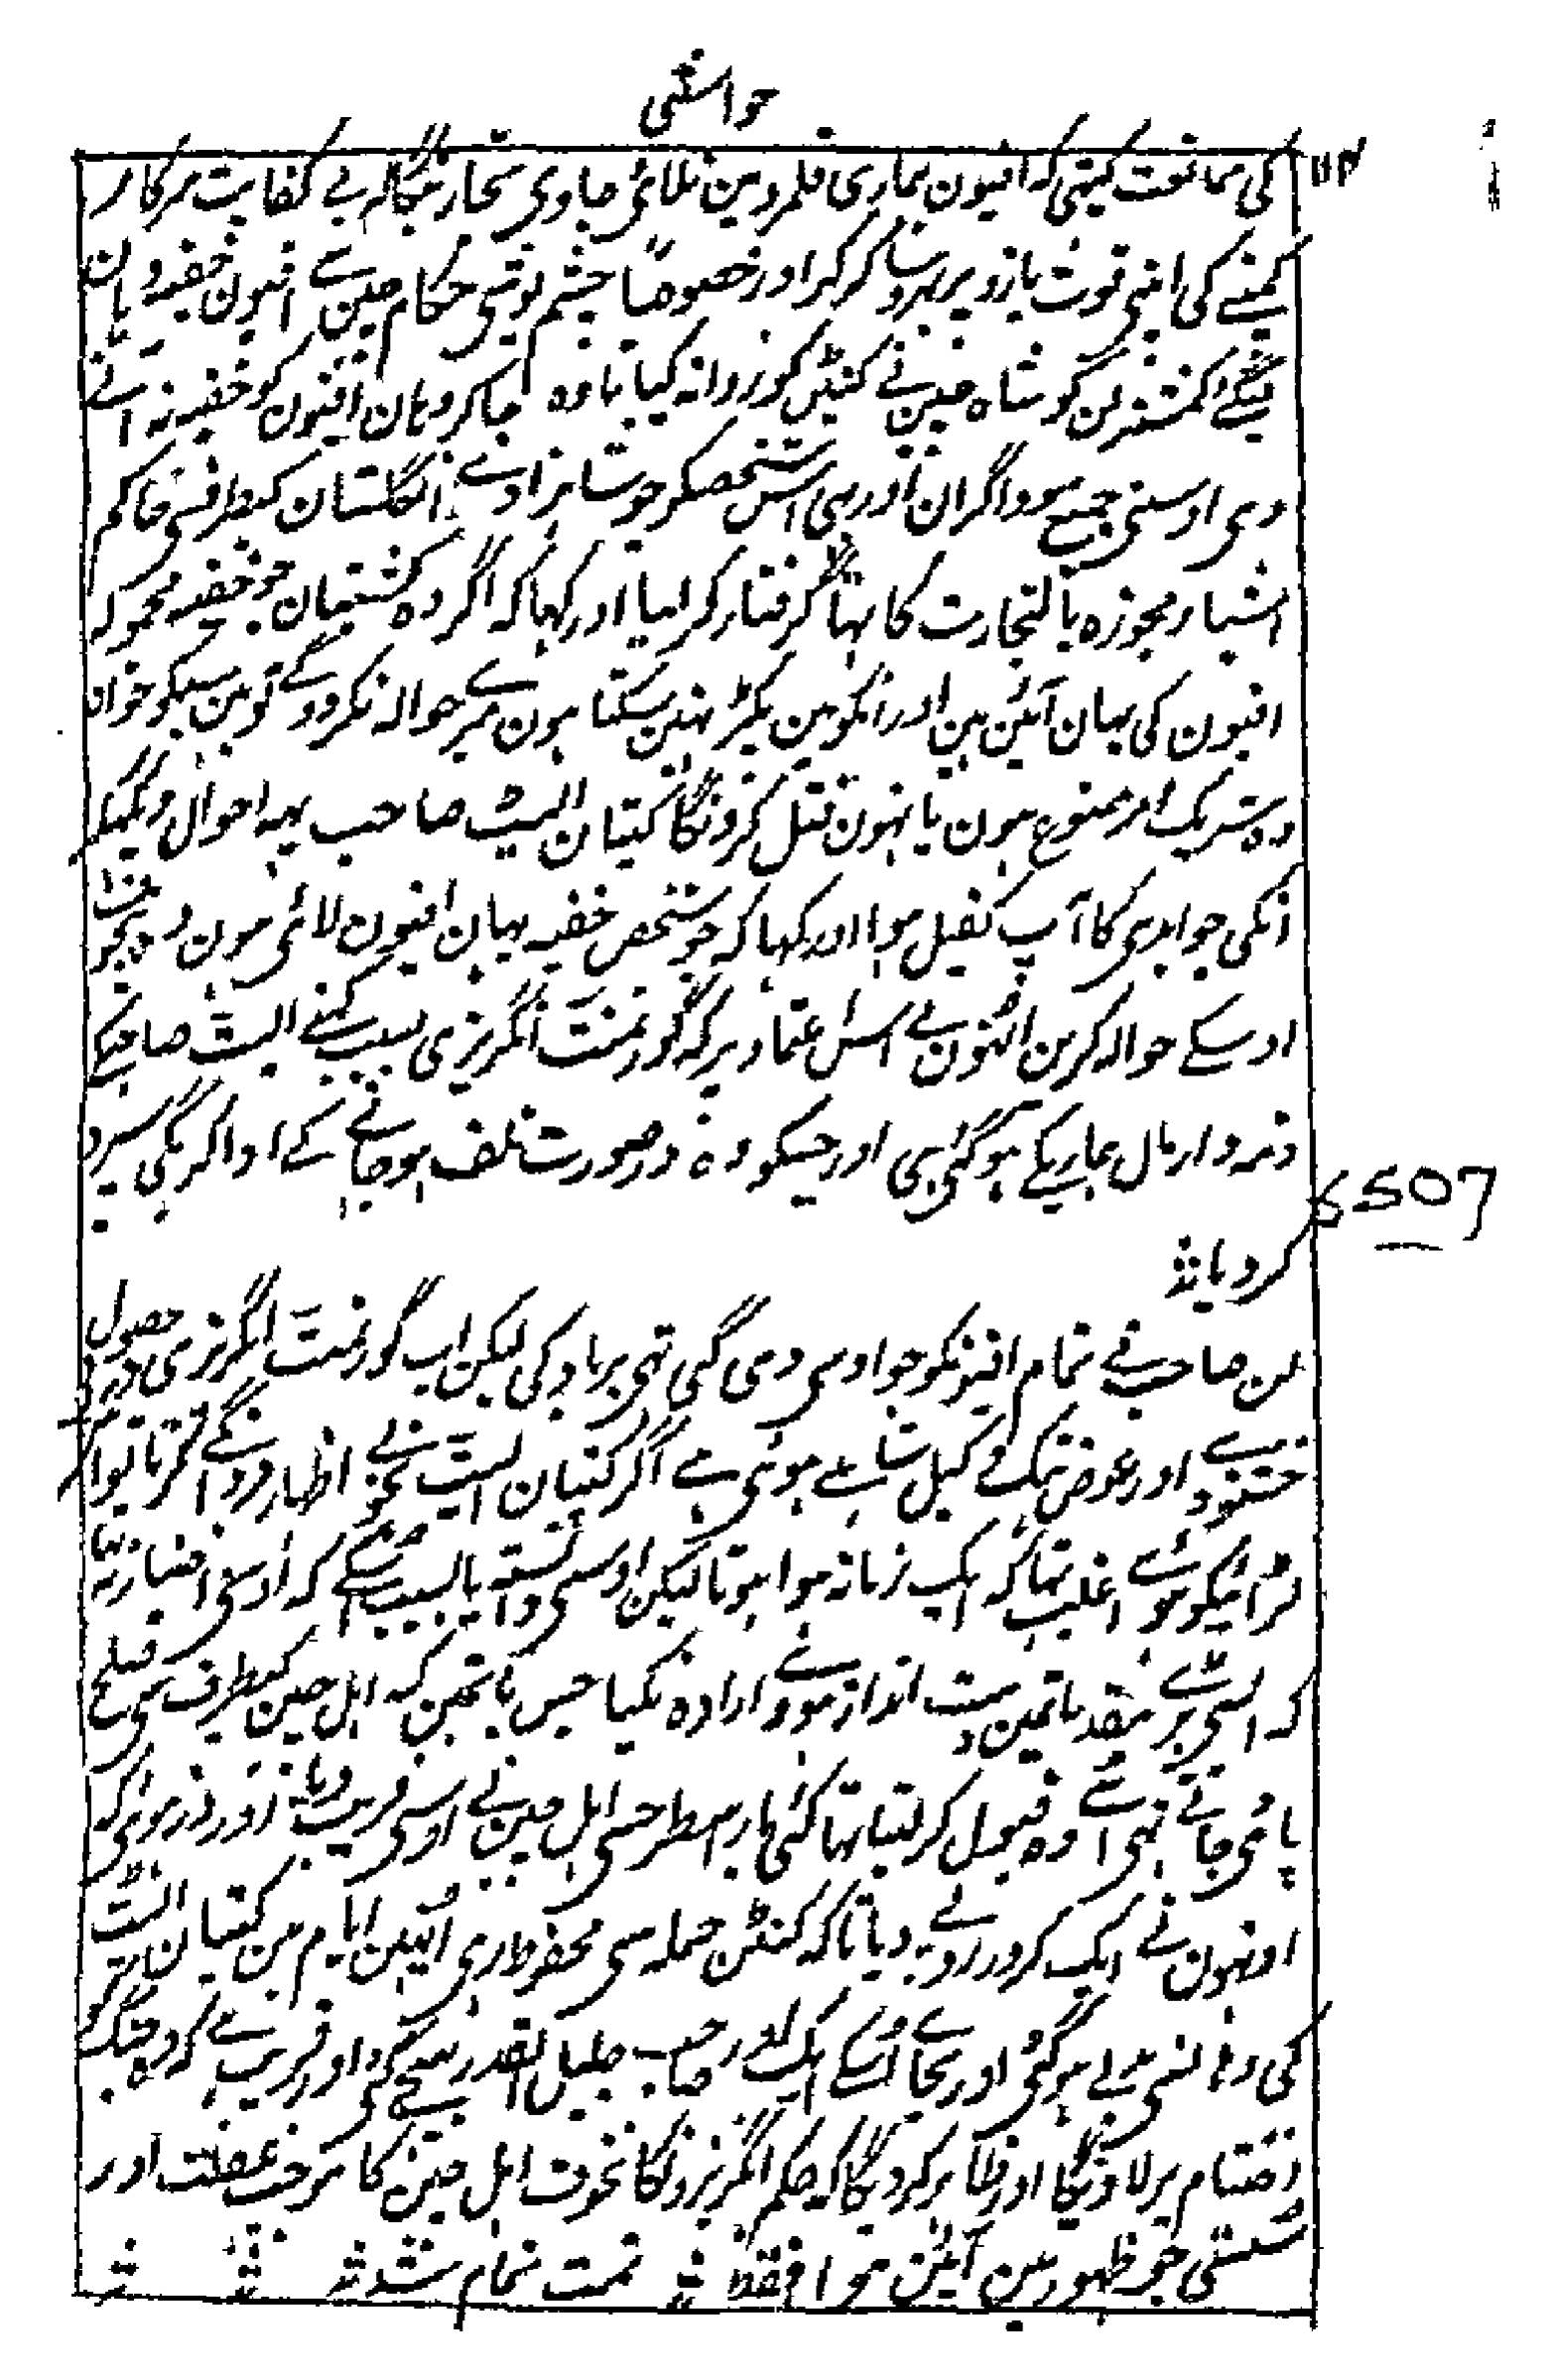 حواشی
۱۱۴
کی ممانعت کیتہی کہ افیون ہماری قلمرو مین نلائی جاوی تجار بنگالہ نے کفایت سرکار
کمپنے کی اپنی قوت بازو پر بہروسا کرکر اور خصوصاً چشم پوشی حکام چین سے افیون خفیہ وہان
لیگئے کمشنر لن کو شاہ چین نے کنٹن کو روانہ کیا تا وہ جا کر وہان افیون کو خفیہ نہ آنے
دی اوسنی جمیع سوداگران اور اس شخصکو جو شاہزادے انگلستان کیطرفسی حاکم
اشیاء مجوزہ بالتجارت کا تہا گرفتار کر لیا اور کہا کہ اگر وہ کشتیان جو خفیہ محمولہ
افیون کی یہان آئین ہین اور انکو مین پکڑ نہین سکتا ہون میرے حوالہ نکرو گے تو مین سبکو خواہ
وہ شریک امر ممنوع ہون یا نہون قتل کرونگا کپتان الیٹ صاحب یہہ احوال دیکہکر
انکی جوابدہی کا آپ کفیل ہوا اور کہا کہ جو شخص خفیہ یہان افیون لائی ہون وہ بخوشی
اوسکے حوالہ کرین انہون نے اس اعتماد پر کہ گورنمنٹ انگریزی بسبب کہنے الیٹ صاحبکے
ذمہ وار مال ہماریکے ہو گئی ہی اور جسکو وہ در صورت تلف ہو جانے کے ادا کریگی سپرد
کر دیا
لن صاحب نے تمام افیونکو جو اوسی دی گئی تہی برباد کی لیکن اب گورنمنٹ انگریزی حصول
خشنودے اور عوض ہتک وکیل شاہے ہوئی ہے اگر کپتان الیٹ بخوبی اظہار مردانگے کرتا تو اس
لڑائیکو ہوئے اغلب تہا کہ ایک زمانہ ہوا ہوتا لیکن اوسی دانستہ یا بسبب اسکے کہ اوسی اختیار نہ تہا
کہ ایسی بڑے مقدماتمین دست انداز ہووے ارادہ نکیا جس باتمین کہ اہل چین کیطرف سی صلح
پائی جاتے تہی اسے وہ قبول کر لیتا تہا کئی بار اسطرحسی اہل چین نے اوسی فریب دیا
اونہون نے ایک کرور روپے دیا تاکہ کنٹن حملہ سی محفوظ رہی انہین ایام مین کپتان الیٹ
کی وہانسی بدلے ہوگئی اور بجائے اسکے ایک اور صاحب جلیل القدر بہیجے گئی اور قریب ہے کہ وہ جنگ کو
اختتام پر لاویگا اور ظاہر کر دیگا کہ حکم انگریزونکا نخوت اہل چین کا موجب غفلت اور
سستی جو ظہور مین آئین ہوا فقط تمت تمام شد